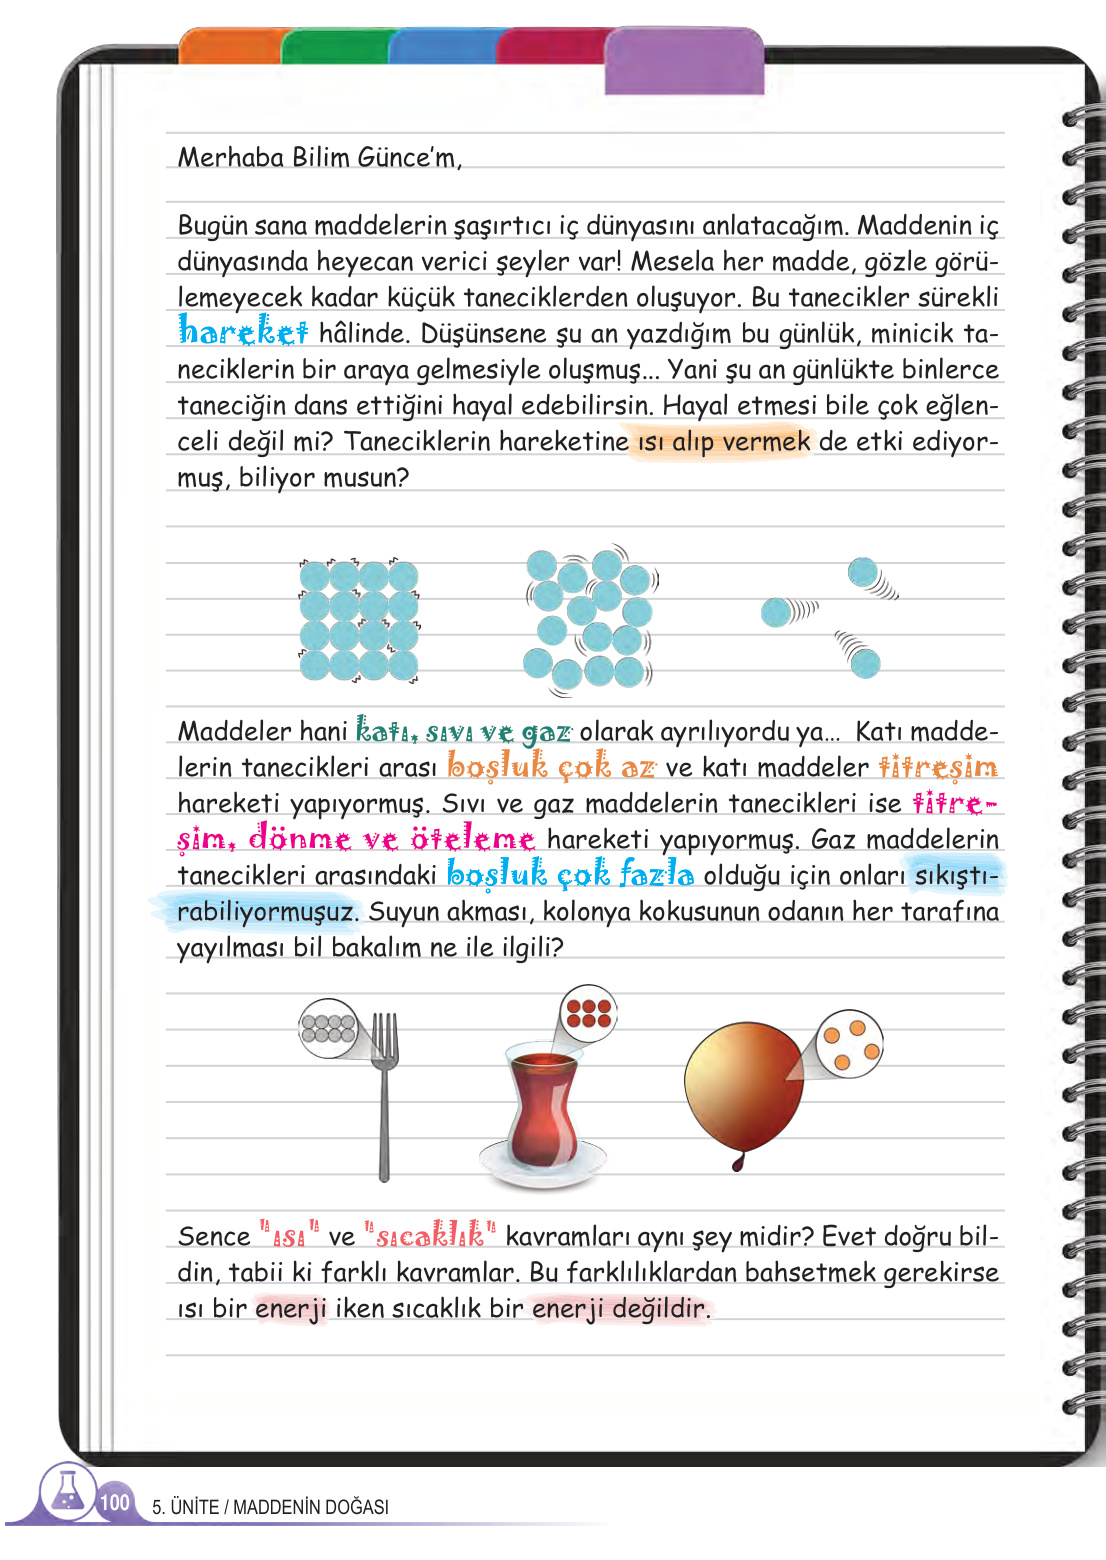 Merhaba Bilim Günce'm,
Bugün sana maddelerin şaşırtıcı iç dünyasını anlatacağım. Maddenin iç
dünyasında heyecan verici şeyler var! Mesela her madde, gözle görü-
lemeyecek kadar küçük taneciklerden oluşuyor. Bu tanecikler sürekli
hareket hâlinde. Düşünsene şu an yazdığım bu günlük, minicik ta-
neciklerin bir araya gelmesiyle oluşmuş... Yani şu an günlükte binlerce
taneciğin dans ettiğini hayal edebilirsin. Hayal etmesi bile çok eğlen-
celi değil mi? Taneciklerin hareketine ısı alıp vermek de etki ediyor-
muş, biliyor musun?
Maddeler hani katı, sıvı ve gaz olarak ayrılıyordu ya... Katı madde-
lerin tanecikleri arası boşluk çok az ve katı maddeler titreşim
hareketi yapıyormuş. Sıvı ve gaz maddelerin tanecikleri ise titre-
şim, dönme ve öteleme hareketi yapıyormuş. Gaz maddelerin
tanecikleri arasındaki boşluk çok fazla olduğu için onları sıkıştı-
rabiliyormuşuz. Suyun akması, kolonya kokusunun odanın her tarafına
yayılması bil bakalım ne ile ilgili?
Sence "ısı" ve "sıcaklık" kavramları aynı şey midir? Evet doğru bil-
din, tabii ki farklı kavramlar. Bu farklılıklardan bahsetmek gerekirse
ısı bir enerji iken sıcaklık bir enerji değildir.
100 5. ÜNİTE / MADDENİN DOĞASI